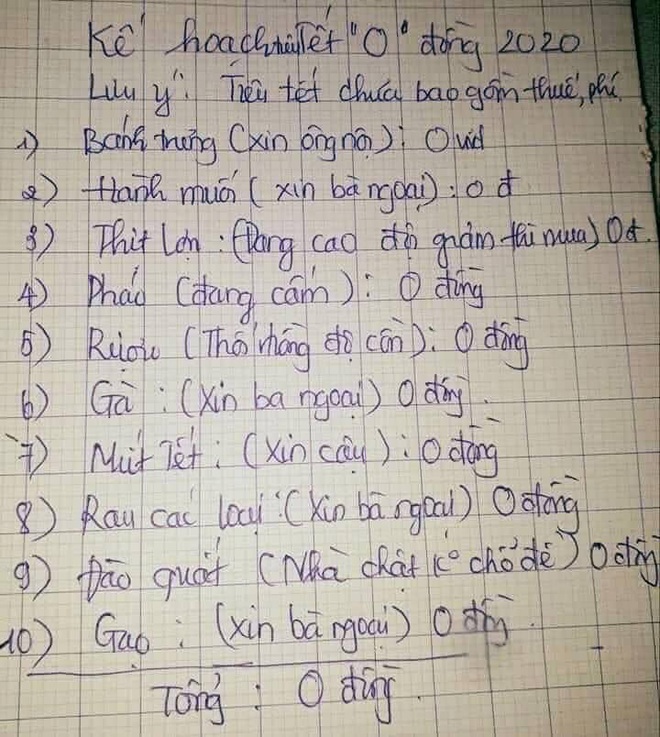 Kế hoạch tiêu Tết "0" đồng 2020
Lưu ý: Tiêu tết chưa bao gồm thuế, phí
1) Bánh trưng (xin ông nội): 0 vnđ
2) Hành muối (xin bà ngoại): 0 đ
3) Thịt Lợn: (Đang cao đợi giảm thì mua) 0đ.
4) Pháo (đang cấm): 0 đồng
5) Rượu (Thổi nồng độ cồn): 0 đồng
6) Gà: (Xin bà ngoại) 0 đồng.
7) Mứt Tết: (xin cậy): 0 đồng
8) Rau các loại: (Xin bà ngoại) 0 đồng
9) Đào quất (Nhà chật k° chỗ để) 0 đồng
10) Gạo: (xin bà ngoại) 0 đồng.
Tổng: 0 đồng.